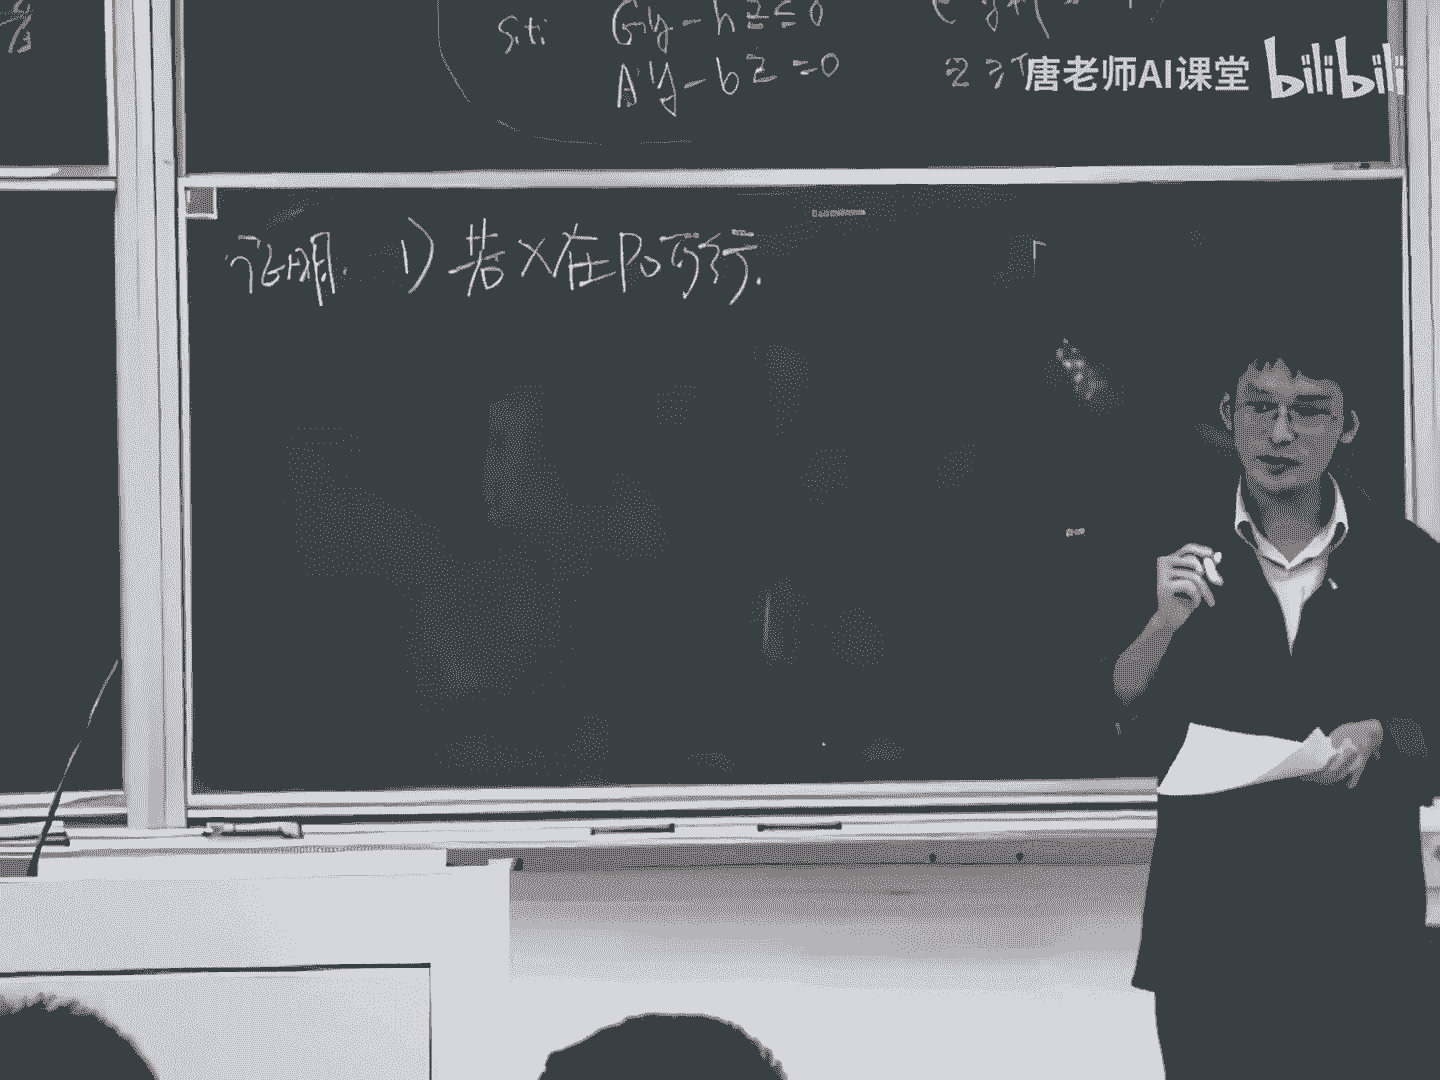 s.t. Gy - hz ≤ 0
Ay - bz = 0
z ≥
唐老师AI课堂 bilibili
证明. 1) 若x在P0可行.